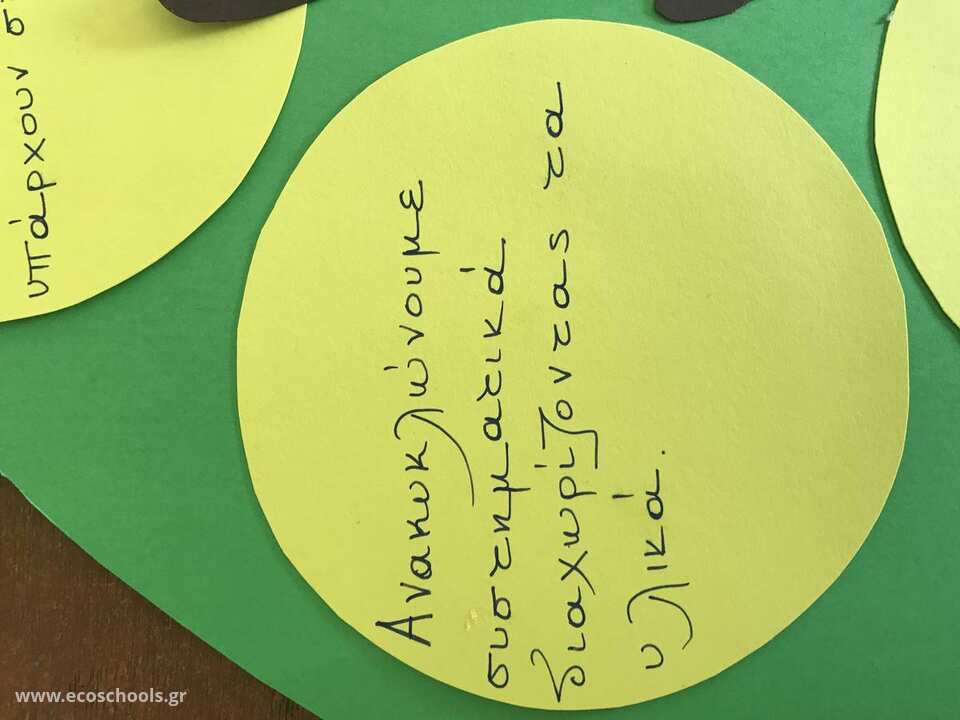 υπάρχουν σ
Ανακυκλώνουμε
συστηματικά
διαχωρίζοντας τα
υλικά.
www.ecoschools.gr